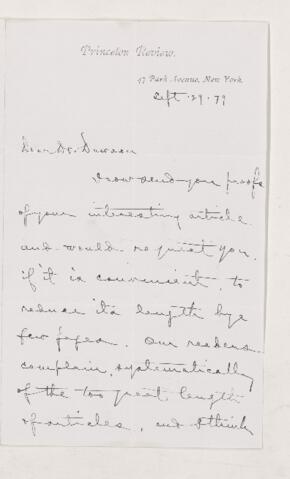 Princeton Review.
47 Park Avenue, New York
Sept. 29. 79
Dear Dr. Dawson
I now send you proofs
of your interesting article
and would request you,
if it is convenient, to
reduce its length by a
few pages. Our readers
complain systematically
of the too great length
of articles, and I think